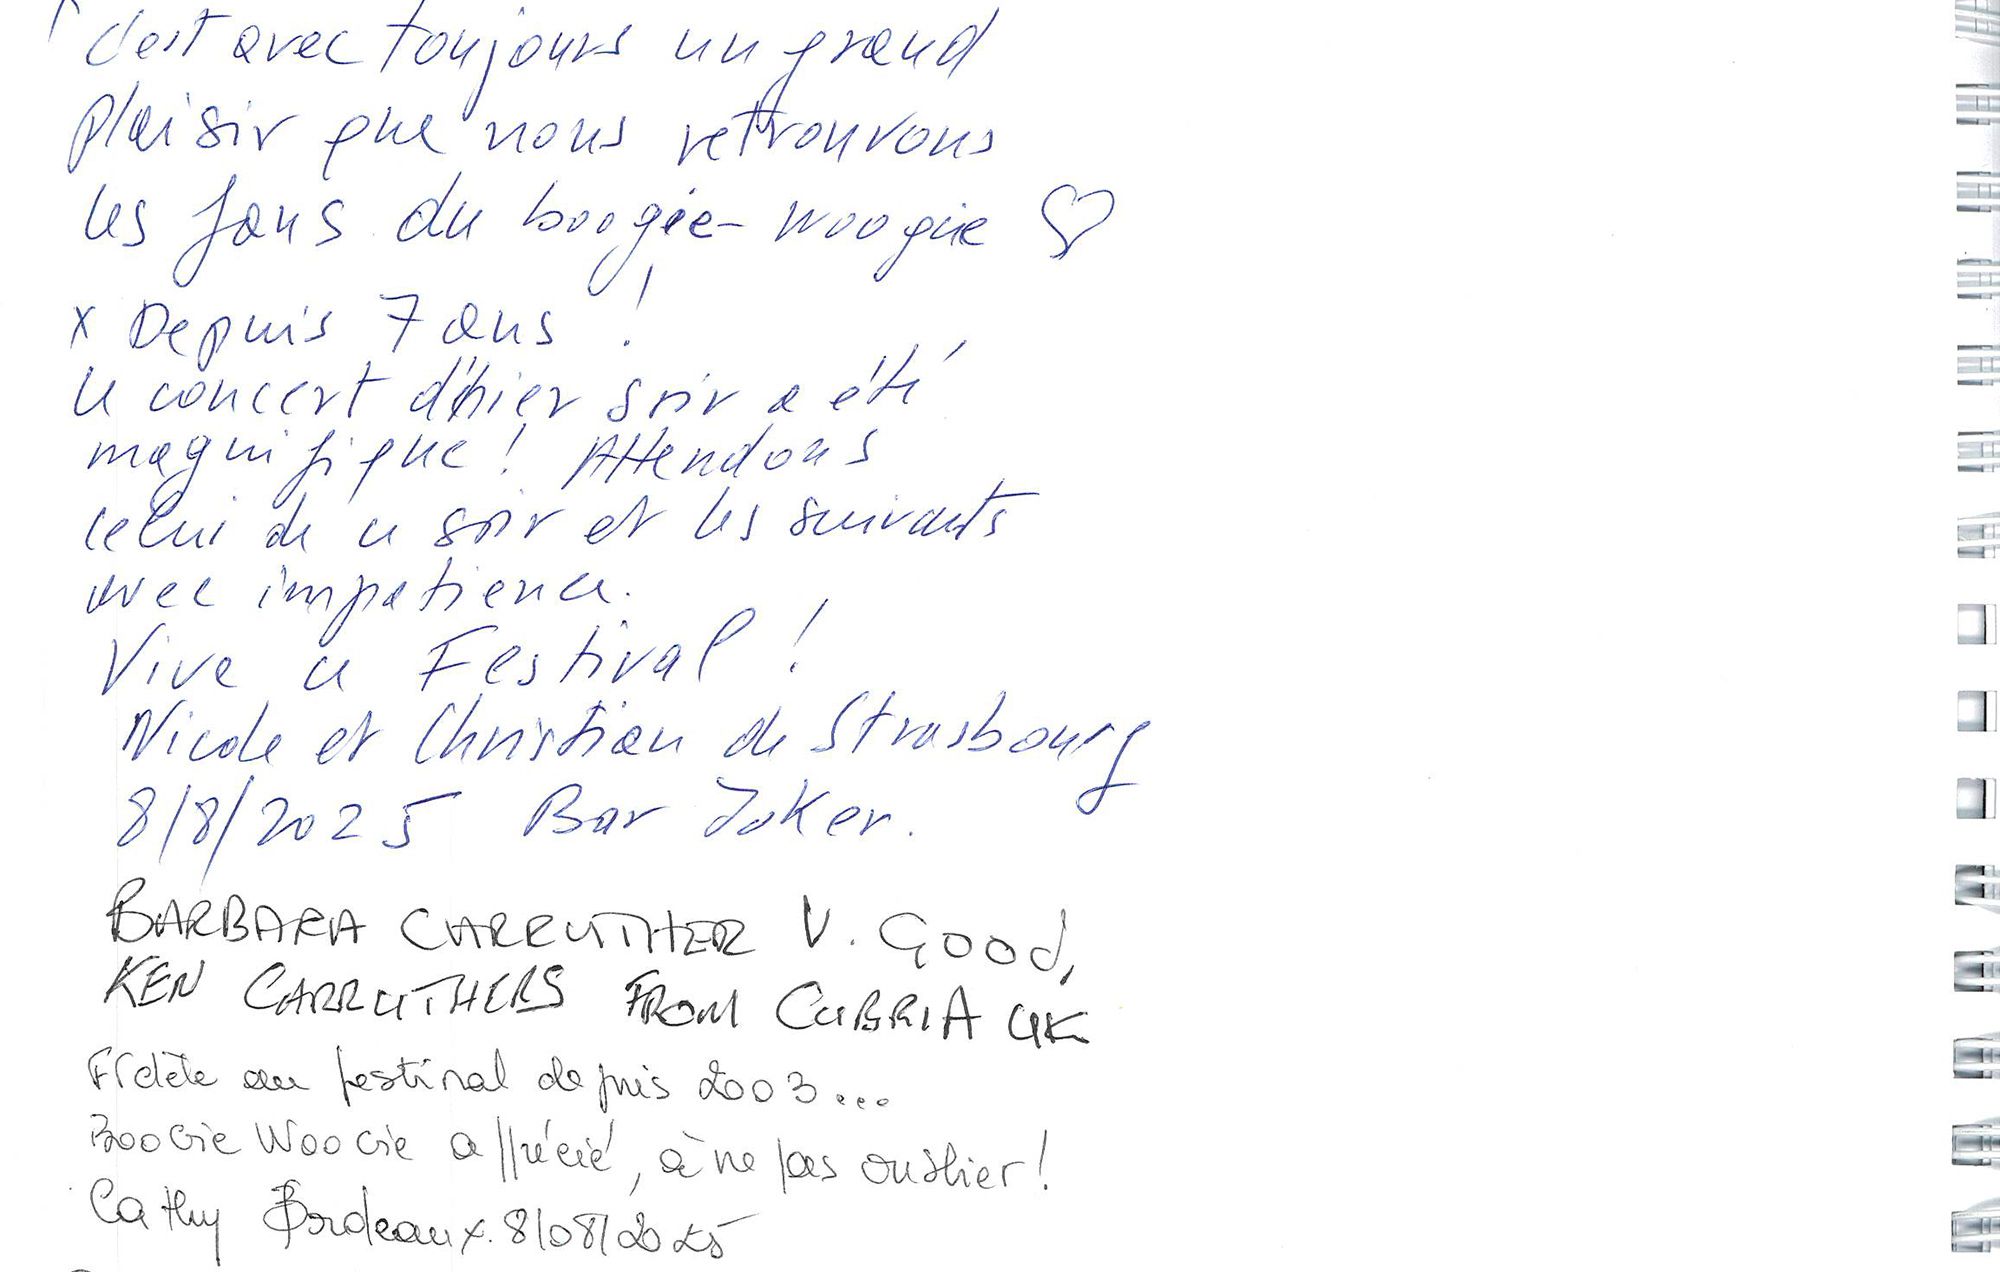 c'est avec toujours un grand
plaisir que nous retrouvons
les fans du boogie-woogie ♡
x Depuis 7 ans !
Le concert d'hier soir a été
magnifique ! Attendons
celui de ce soir et les suivants
avec impatience.
Vive ce Festival !
Nicole et Christian de Strasbourg
8/8/2025 Bar Joker.
BARBARA CARRUTHER V. GOOD,
KEN CARRUTHERS FROM CUBRIA UK
Fidèle au festival depuis 2003...
Boogie Woogie apprécié, à ne pas oublier !
Cathy Bordeaux. 8/08/2025